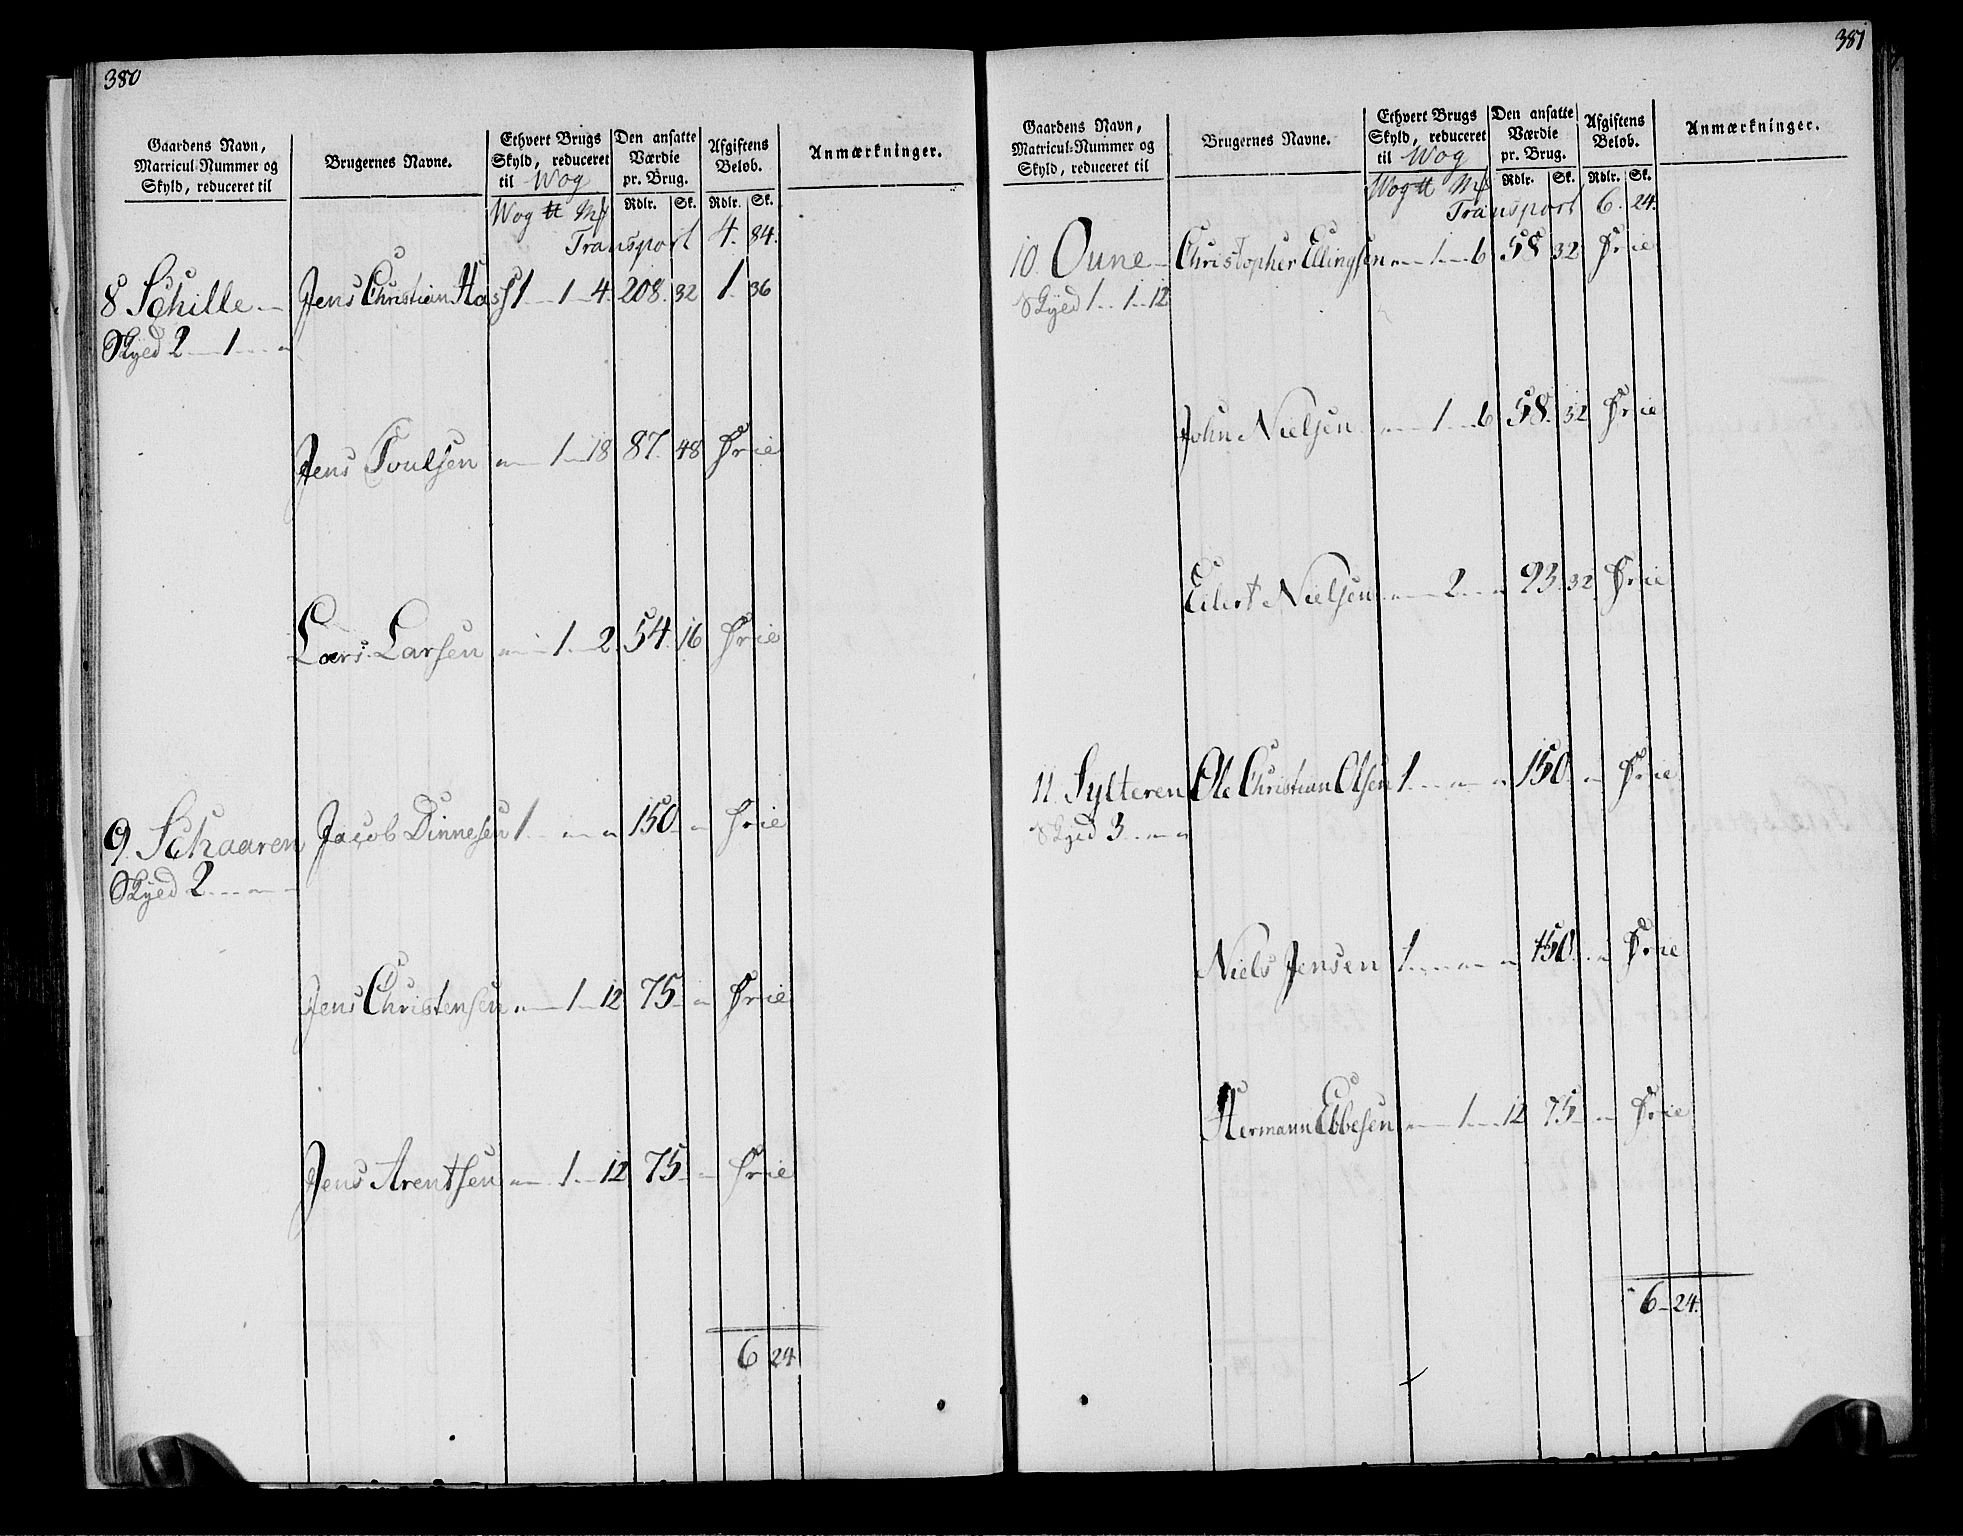 380
Gaardens Navn,
Matricul-Nummer og
Skyld, reduceret til
Brugernes Navne.
Ethvert Brugs
Skyld, reduceret
til Wog
Den ansatte
Værdie
pr. Brug.
Afgiftens
Beløb.
Anmærkninger.
Wog ℔ Mk Rdlr. Sk. Rdlr. Sk.
Transport 4. 84.
8 Schille Jens Christian Hass 1 1 4 208. 32 1. 36
Skyed 2 1
Jens Poulsen 1 18 87. 48 Frie
Lars Larsen 1 2 54 16 Frie
9. Schaaren Jacob Dinnesen 1 150 Frie
Skyed 2
Jens Christensen 1 12 75 Frie
Jens Arentsen 1 12 75 Frie
6 24
381
Gaardens Navn,
Matricul-Nummer og
Skyld, reduceret til
Brugernes Navne.
Ethvert Brugs
Skyld, reduceret
til Wog
Den ansatte
Værdie
pr. Brug.
Afgiftens
Beløb.
Anmærkninger.
Wog ℔ Mk Rdlr. Sk. Rdlr. Sk.
Transport 6. 24.
10. Oune Christopher Ellingsen 1 6 58 32 Frie
Skyed 1 1 12
John Nielsen 1 6 58. 32 Frie
Eilert Nielsen 2 93 32 Frie
11. Sylteren Ole Christian Olsen 1 150 Frie
Skyed 3
Niels Jensen 1 150 Frie
Hermann Ebbesen 1 12 75 Frie
6 24.